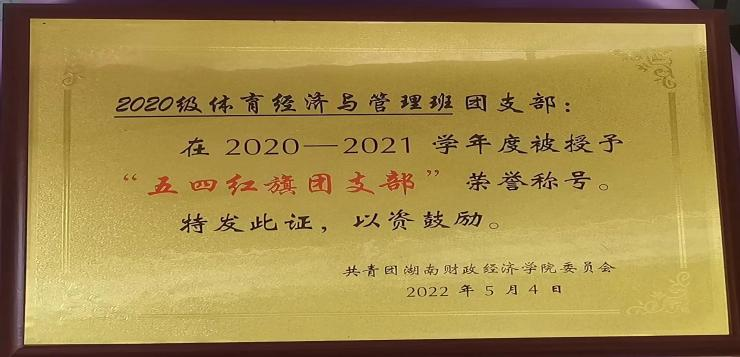 2020级体育经济与管理班团支部：
在 2020—2021 学年度被授予
“五四红旗团支部”荣誉称号。
特发此证，以资鼓励。
共青团湖南财政经济学院委员会
2022 年 5 月 4 日